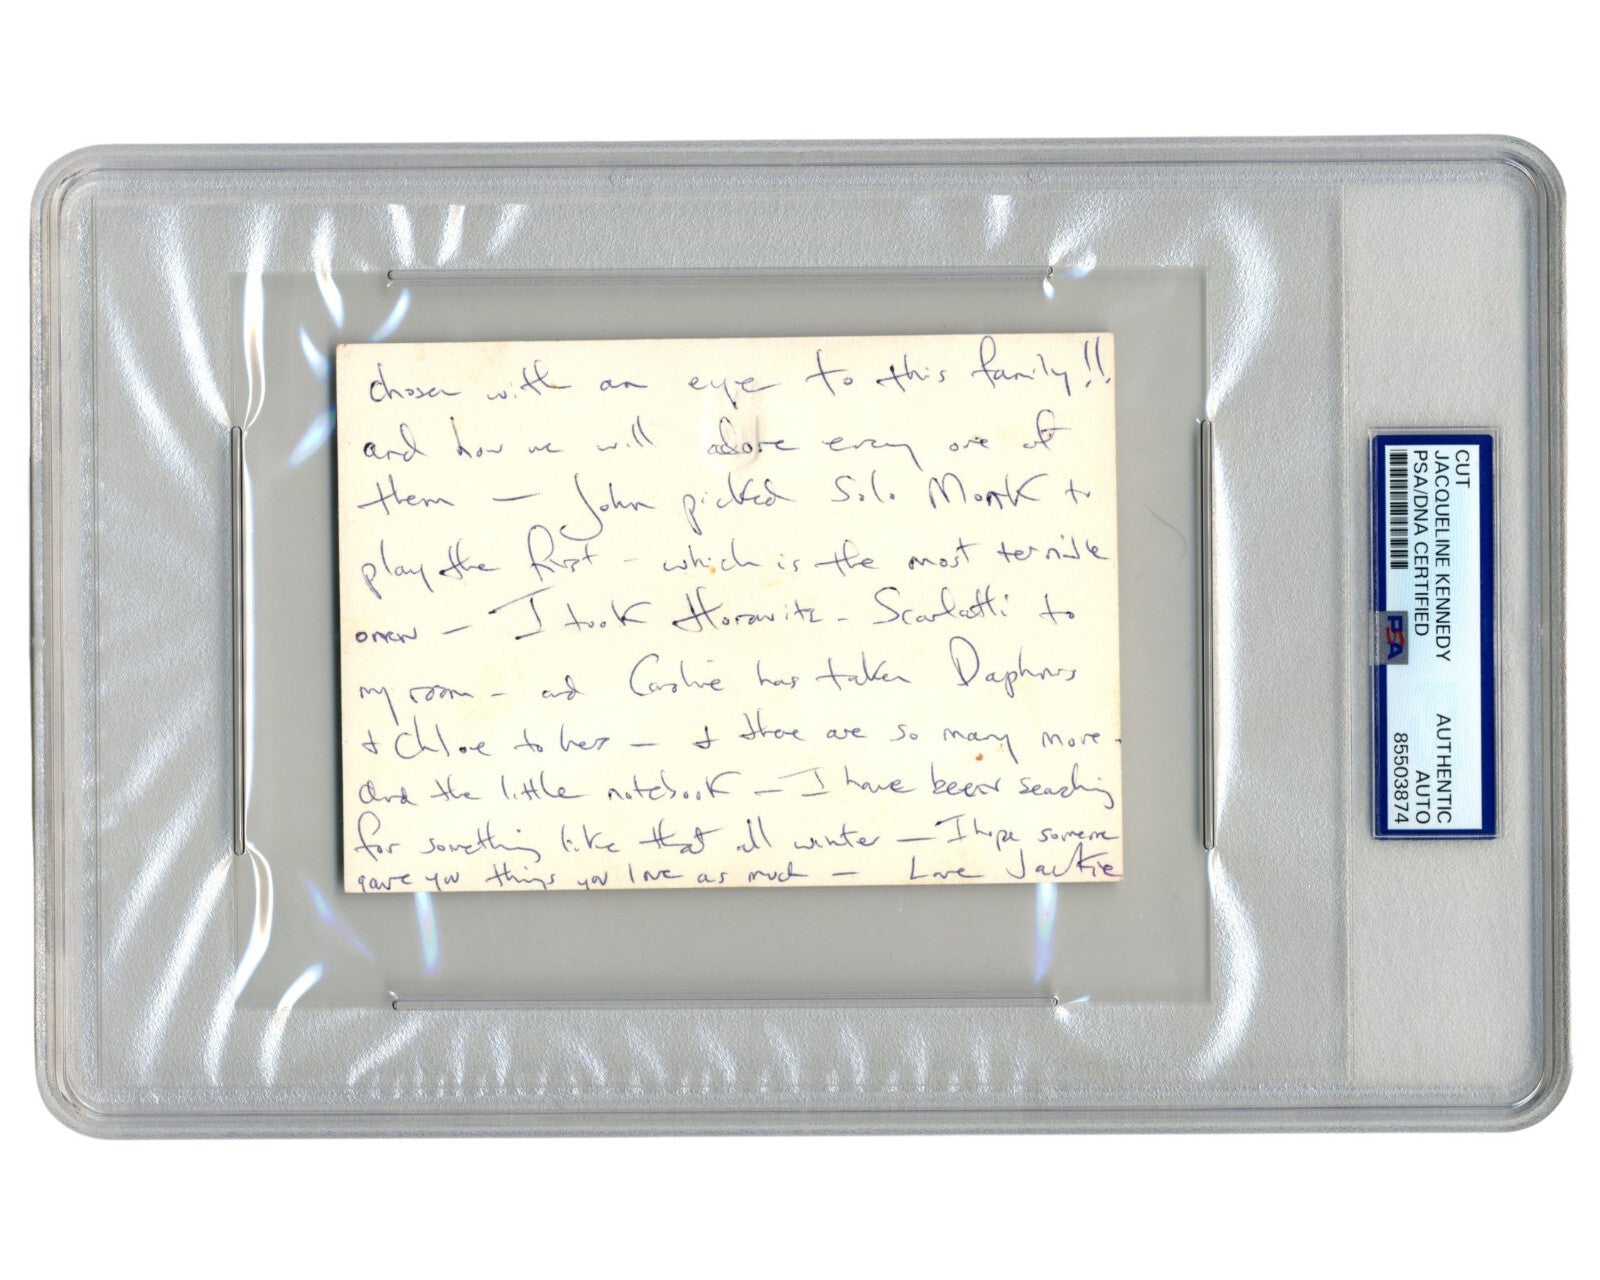 chosen with an eye to this family!!
and how we will adore every one of
them — John picked Solo Monk to
play the first - which is the most terrible
omen — I took Horowitz - Scarlatti to
my room - and Caroline has taken Daphnis
& Chloe to hers — & there are so many more -
And the little notebook — I have been searching
for something like that all winter — I hope someone
gave you things you love as much — Love Jackie
CUT
JACQUELINE KENNEDY
PSA/DNA CERTIFIED
AUTHENTIC
AUTO
85503874
PSA